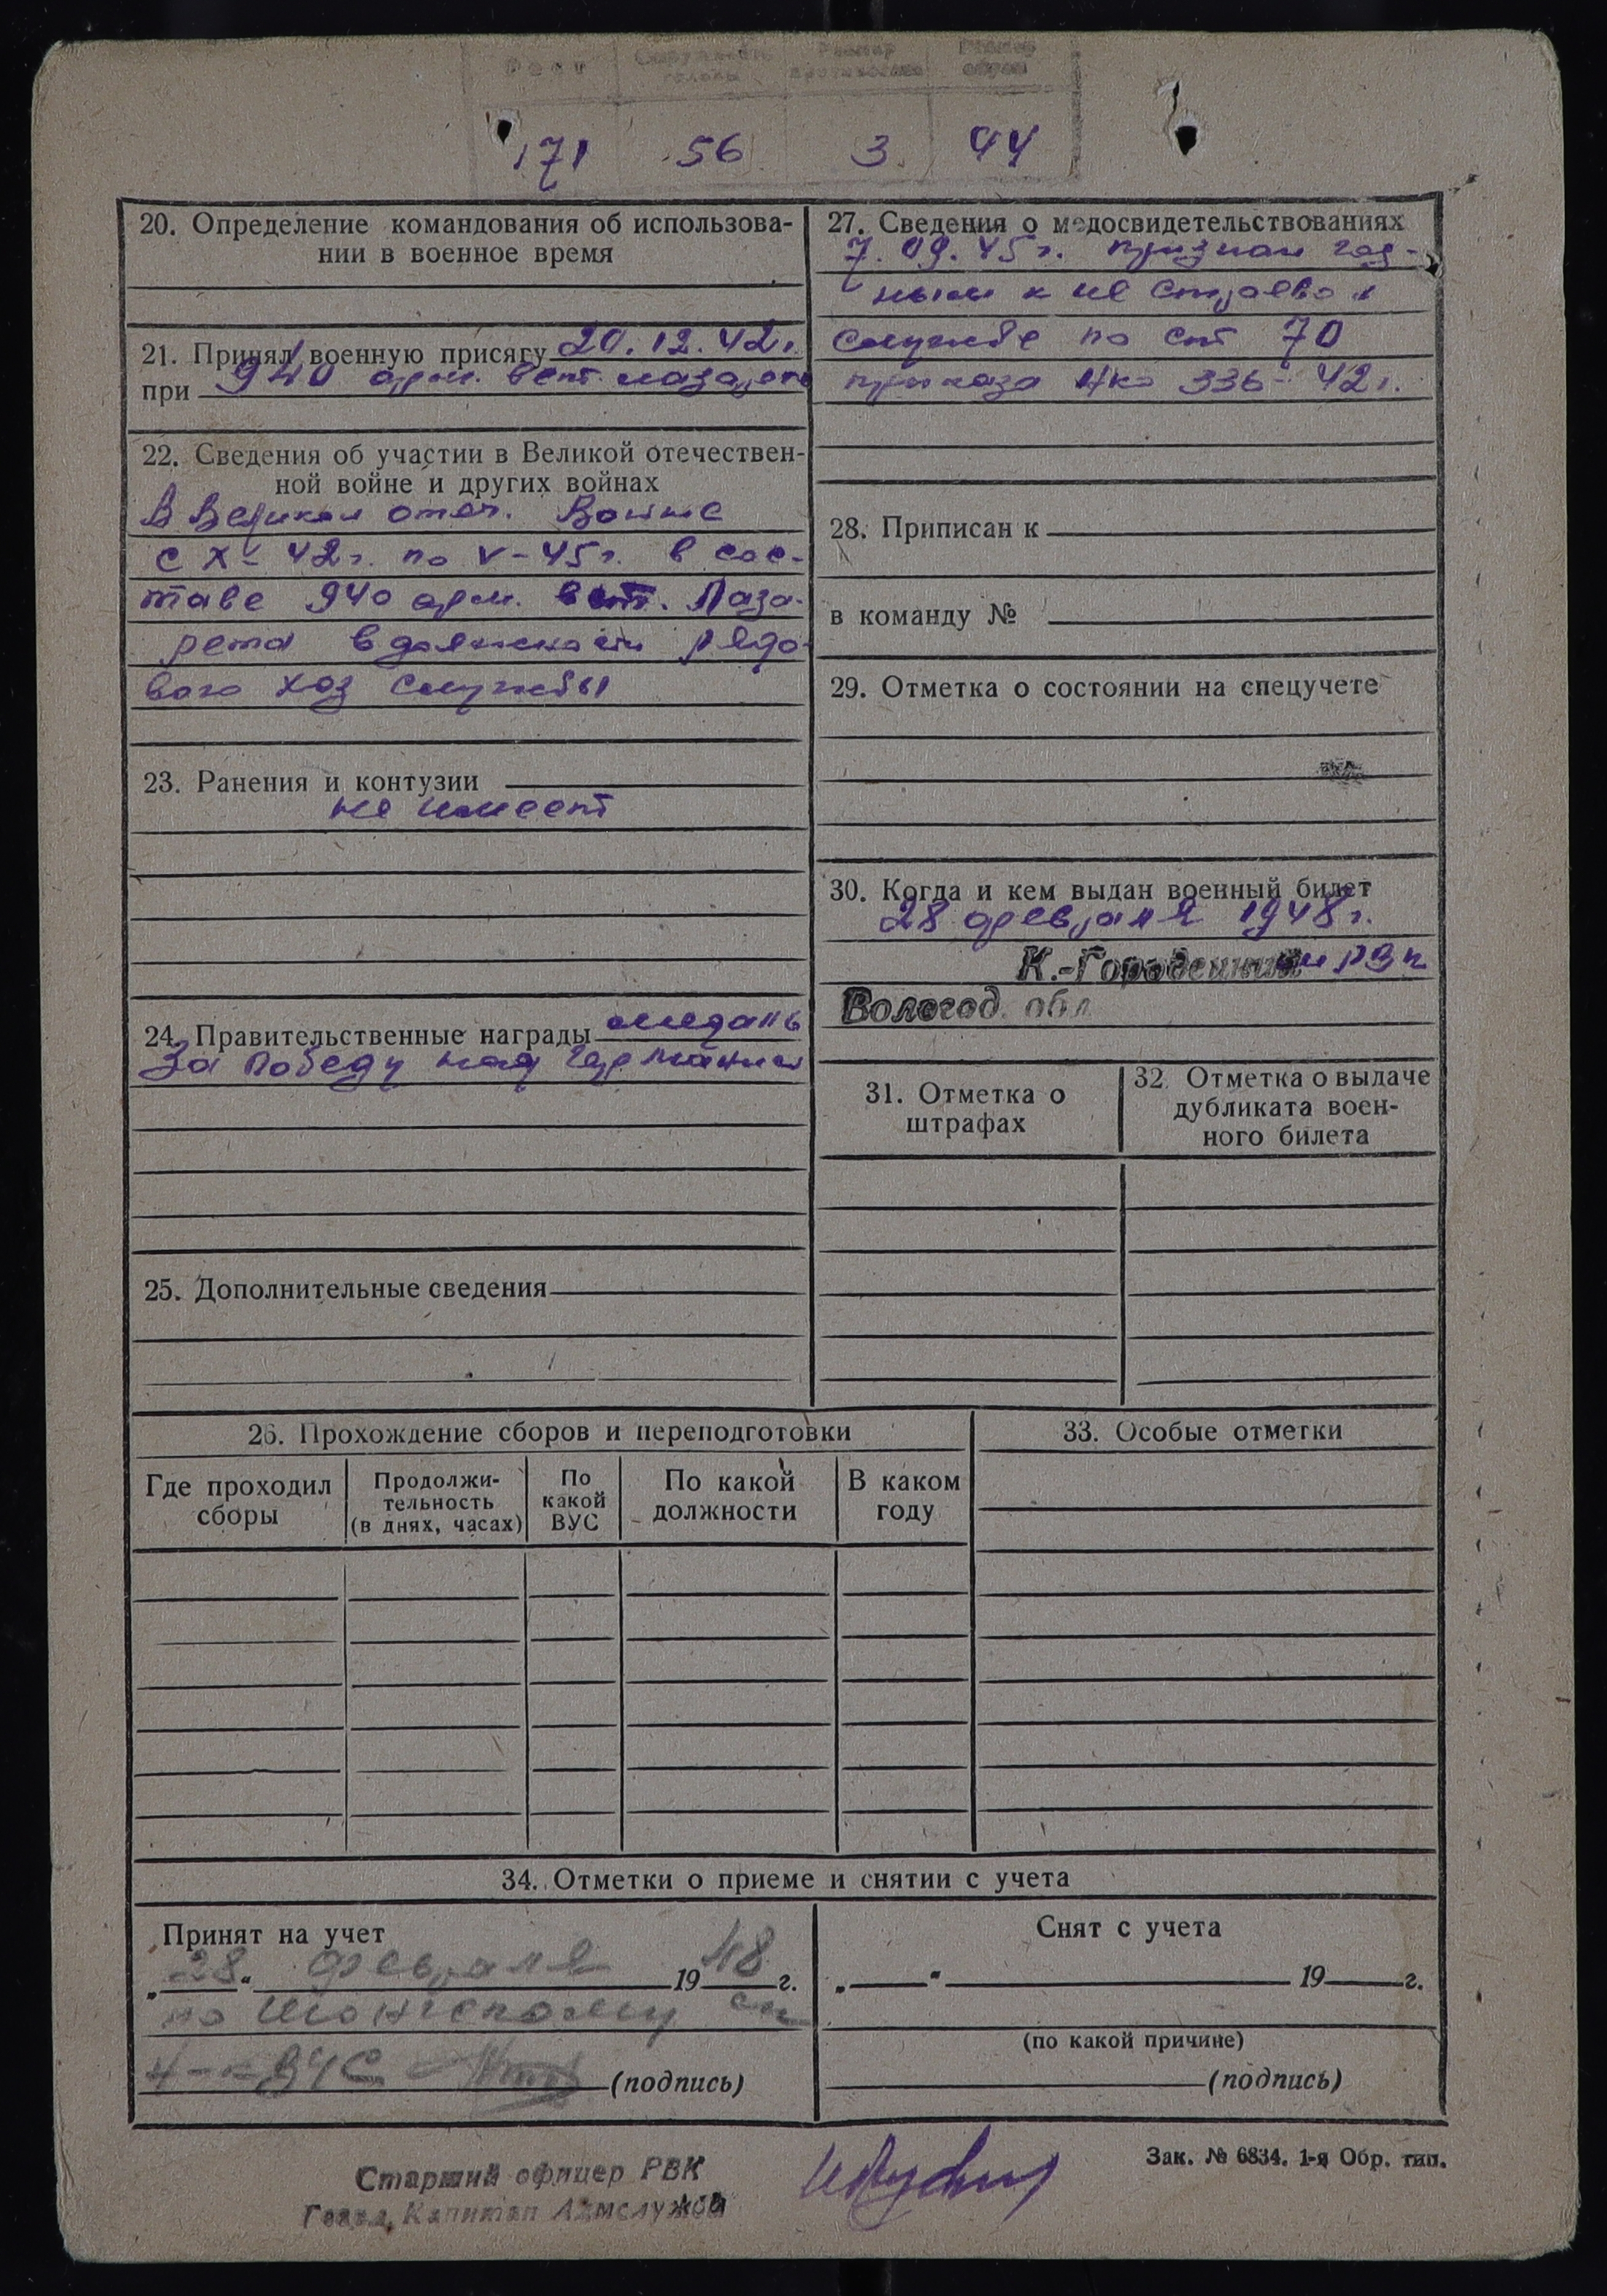 Рост Окружность головы Размер противогаза Размер обуви
171 56 3 44
20. Определение командования об использова-
нии в военное время
21. Принял военную присягу 20.12.42г.
при 940 арм. вет. лазарете
22. Сведения об участии в Великой отечествен-
ной войне и других войнах
В Великой отеч. Войне
с X-42г. по V-45г. в сос-
таве 940 арм. вет. Лаза-
рета в должности рядо-
вого хоз службы
23. Ранения и контузии
не имеет
24. Правительственные награды медаль
За победу над Германией
25. Дополнительные сведения
27. Сведения о медосвидетельствованиях
7.09.45г. признан год-
ным к не строевой
службе по ст 70
приказа НКО 336-42г.
28. Приписан к
в команду №
29. Отметка о состоянии на спецучете
30. Когда и кем выдан военный билет
28 февраля 1948г.
К.-Городецким РВК
Вологод. обл
31. Отметка о
штрафах
32. Отметка о выдаче
дубликата воен-
ного билета
26. Прохождение сборов и переподготовки
Где проходил
сборы
Продолжи-
тельность
(в днях, часах)
По
какой
ВУС
По какой
должности
В каком
году
33. Особые отметки
34. Отметки о приеме и снятии с учета
Принят на учет
„28“ февраля 1948 г.
по
ВУС (подпись)
Снят с учета
„ “ 19 г.
(по какой причине)
(подпись)
Старший офицер РВК
Гвард. Капитан Админслужбы
Зак. № 6834. 1-я Обр. тип.